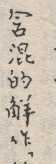 含混的解作、